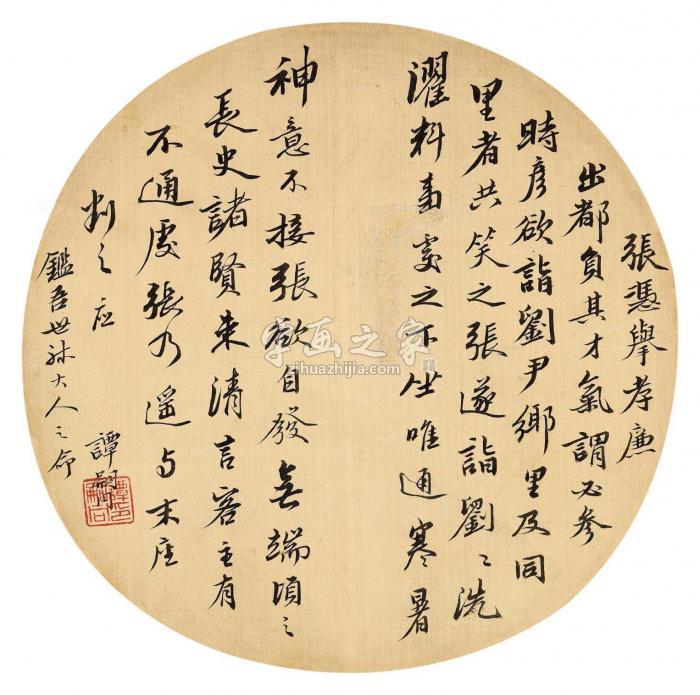 張憑舉孝廉
出都負其才氣謂必參
時彥欲詣劉尹鄉里及同
里者共笑之張遂詣劉〻洗
濯料事處之下坐唯通寒暑
神意不接張欲自發無端頃之
長史諸賢來清言客主有
不通處張乃遙於末座
判之 应
鑑吾世叔大人之命
譚嗣同
字画之家
zihuazhijia.com